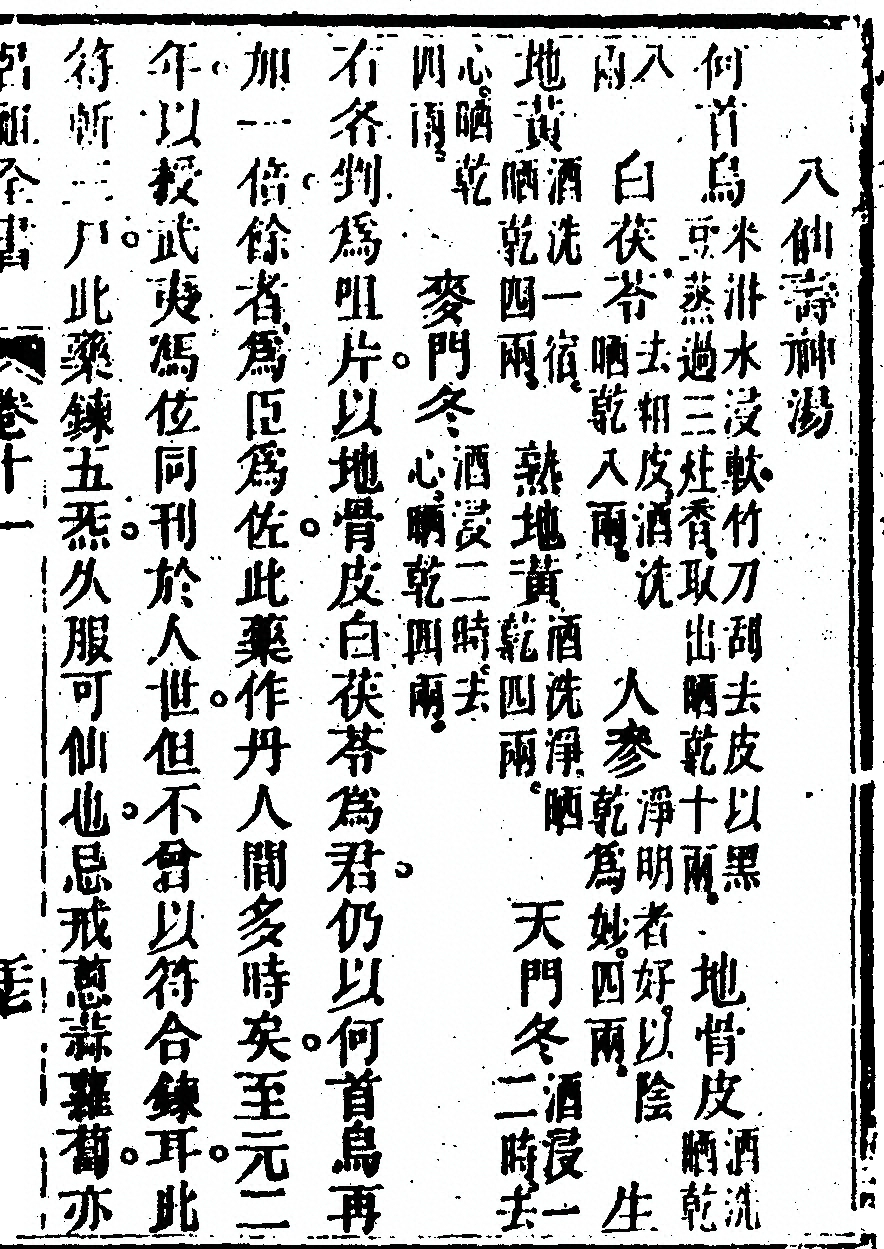 八仙壽神湯
何首烏米泔水浸軟竹刀刮去皮以黑豆蒸過三炷香取出晒乾十兩地骨皮酒洗晒乾
八兩白茯苓去粗皮酒洗晒乾八兩人參淨明者好以陰乾爲妙四兩生
地黃酒洗一宿晒乾四兩熟地黃酒洗淨晒乾四兩天門冬酒浸一二時去
心晒乾四兩麥門冬酒浸二時去心晒乾四兩
右各剉爲咀片以地骨皮白茯苓爲君仍以何首烏再
加一倍餘者爲臣爲佐此藥作丹人間多時矣至元二
年以授武夷馮位同刊於人世但不曾以符合鍊耳此
符斬三尸此藥鍊五炁久服可仙也忌戒葱蒜蘿蔔亦
全書 卷十一